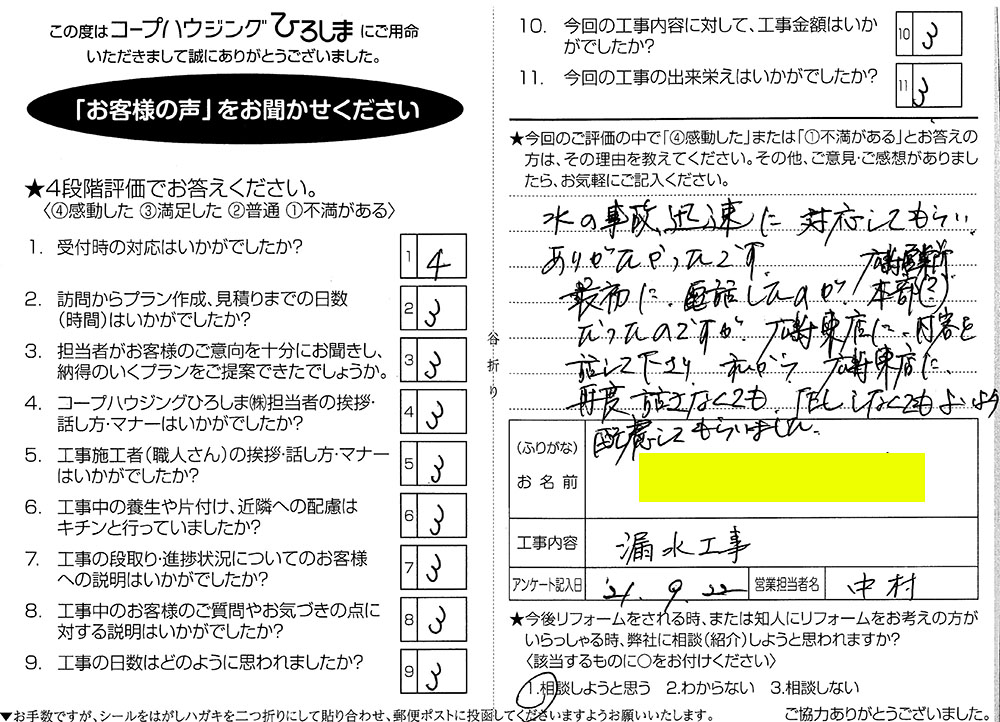 この度はコープハウジングひろしまにご用命
いただきまして誠にありがとうございました。
「お客様の声」をお聞かせください
★4段階評価でお答えください。
〈④感動した ③満足した ②普通 ①不満がある〉
1. 受付時の対応はいかがでしたか?
1 4
2. 訪問からプラン作成、見積りまでの日数
(時間)はいかがでしたか?
2 3
3. 担当者がお客様のご意向を十分にお聞きし、
納得のいくプランをご提案できたでしょうか。
3 3
4. コープハウジングひろしま㈱担当者の挨拶・
話し方・マナーはいかがでしたか?
4 3
5. 工事施工者(職人さん)の挨拶・話し方・マナー
はいかがでしたか?
5 3
6. 工事中の養生や片付け、近隣への配慮は
キチンと行っていましたか?
6 3
7. 工事の段取り・進捗状況についてのお客様
への説明はいかがでしたか?
7 3
8. 工事中のお客様のご質問やお気づきの点に
対する説明はいかがでしたか?
8 3
9. 工事の日数はどのように思われましたか?
9 3
▼お手数ですが、シールをはがしハガキを二つ折りにして貼り合わせ、郵便ポストに投函してくださいますようお願いいたします。
谷折り
10. 今回の工事内容に対して、工事金額はいか
がでしたか?
10 3
11. 今回の工事の出来栄えはいかがでしたか?
11 3
★今回のご評価の中で「④感動した」または「①不満がある」とお答えの
方は、その理由を教えてください。その他、ご意見・ご感想がありまし
たら、お気軽にご記入ください。
水の事故、迅速に対応してもらい
ありがたかったです
最初に、電話したのが、本部(?)
だったのですが 広島東店に、内容を
話して下さり 私から 広島東店に
再度 話さなくても、 なくてもよいよう
配慮してもらいました。
(ふりがな)
お名前
工事内容 漏水工事
アンケート記入日 '21. 9. 22 営業担当者名 中村
★今後リフォームをされる時、または知人にリフォームをお考えの方が
いらっしゃる時、弊社に相談(紹介)しようと思われますか?
〈該当するものに○をお付けください〉
1.相談しようと思う 2.わからない 3.相談しない
ご協力ありがとうございました。